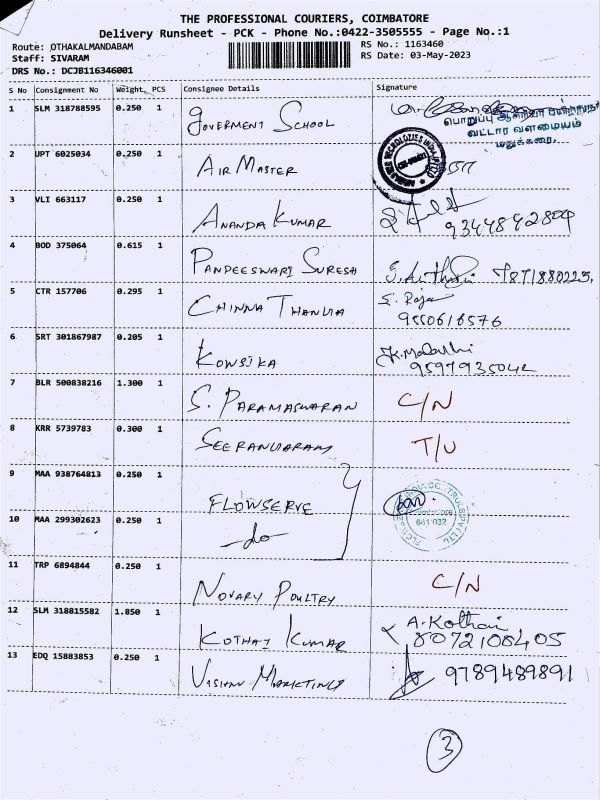 THE PROFESSIONAL COURIERS, COIMBATORE
Delivery Runsheet - PCK - Phone No.:0422-3505555 - Page No.:1
Route: OTHAKALMANDABAM RS No.: 1163460
Staff: SIVARAM RS Date: 03-May-2023
DRS No.: DCJB116346001
S No Consignment No Weight PCS Consignee Details Signature
1 SLM 318788595 0.250 1 GOVERMENT SCHOOL
பொறுப்பு ஆசிரியர்
வட்டார வளமையம்
மதுக்கரை.
2 UPT 6025034 0.250 1 AIR MASTER
3 VLI 663117 0.250 1 ANANDA KUMAR
4 BOD 375064 0.615 1 PANDEESWARI SURESH
5 CTR 157706 0.295 1 CHINNA S. Raja
9550616576
6 SRT 301867987 0.205 1 KOWSIKA
7 BLR 500838216 1.300 1 S. PARAMASWARAN C/N
8 KRR 5739783 0.300 1 T/U
9 MAA 938764813 0.250 1 FLOWSERVE
641 032
10 MAA 299302623 0.250 1 -do-
11 TRP 6894844 0.250 1 NOVARY POULTRY C/N
12 SLM 318815582 1.850 1 KOTHAI KUMAR A.Kothai
8072108405
13 EDQ 15883853 0.250 1 9789489891
3